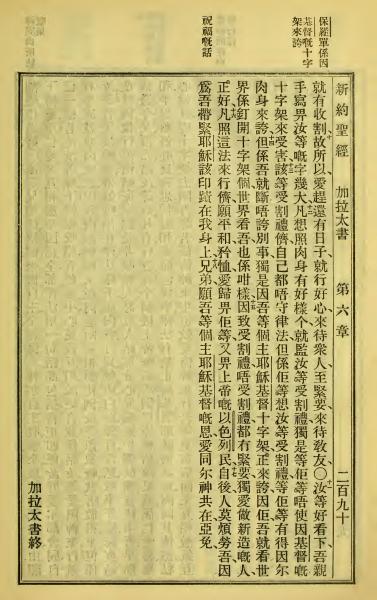 保羅單係因
基督嘅十字
架來誇
祝福嘅話
新約聖經 加拉太書 第六章 二百九十
就有收割故所以愛趕還有日子就行好心來待衆人至緊要來待敎友〇汝等好看下吾親
手寫畀汝等嘅字幾大凡想照肉身有好樣个就監汝等受割禮獨是等佢等唔使因基督嘅
十字架來受害該等受割禮儕自己都唔守律法但係佢等想汝等受割禮等佢等有得因尔
肉身來誇但係吾就斷唔誇別事獨是因吾等個主耶穌基督十字架正來誇因佢吾就看世
界係釘開十字架個世界看吾也係咁樣因致受割禮唔受割禮都冇緊要獨愛做新造嘅人
正好凡照這法來行儕願平和矜恤愛歸畀佢等又畀上帝嘅以色列民自後人莫煩勞吾因
爲吾帶緊耶穌該印蹟在我身上兄弟願吾等個主耶穌基督嘅恩愛同尔神共在亞免
加拉太書終